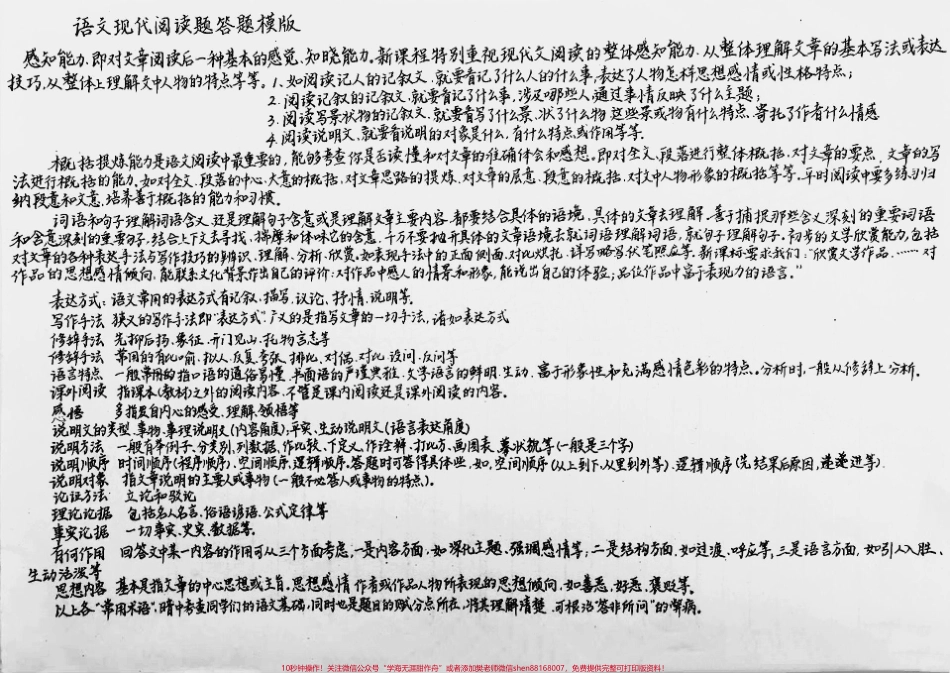 语文现代阅读题答题模版
感知能力,即对文章阅读后一种基本的感觉、知晓能力。新课程特别重视现代文阅读的整体感知能力,从整体理解文章的基本写法或表达
技巧,从整体上理解文中人物的特点等等。1.如阅读记人的记叙文,就要看记了什么人的什么事,表达了人物怎样思想感情或性格特点;
2.阅读记叙的记叙文,就要看记了什么事,涉及哪些人,通过事情反映了什么主题;
3.阅读写景状物的记叙文,就要看写了什么景、状了什么物,这些景或物有什么特点,寄托了作者什么情感
4.阅读说明文,就要看说明的对象是什么,有什么特点或作用等等.
概括提炼能力是语文阅读中最重要的,能够考查你是否读懂和对文章的准确体会和感想。即对全文、段落进行整体概括,对文章的要点、文章的写
法进行概括的能力。如对全文、段落的中心、大意的概括,对文章思路的提炼,对文章的层意、段意的概括,对文中人物形象的概括等等。平时阅读中要多练习归
纳段意和文意,培养善于概括的能力和习惯。
词语和句子理解词语含义,还是理解句子含意或是理解文章主要内容,都要结合具体的语境,具体的文章去理解。善于捕捉那些含义深刻的重要词语
和含意深刻的重要句子,结合上下文去寻找、揣摩和体味它的含意,千万不要抛开具体的文章语境去就词语理解词语,就句子理解句子。初步的文学欣赏能力,包括
对文章的各种表达手法与写作技巧的辨识、理解、分析、欣赏。如表现手法中的正面侧面、对比烘托、详写略写、伏笔照应等。新课标要求我们:“欣赏文学作品,……对
作品的思想感情倾向,能联系文化背景作出自己的评价;对作品中感人的情景和形象,能说出自己的体验;品位作品中富于表现力的语言。”
表达方式:语文常用的表达方式有记叙、描写、议论、抒情、说明等。
写作手法 狭义的写作手法即“表达方式”,广义的是指写文章的一切手法,诸如表达方式
修辞手法 先抑后扬、象征、开门见山、托物言志等
修辞手法 常用的有比喻、拟人、反复、夸张、排比、对偶、对比、设问、反问等
语言特点 一般常用的指口语的通俗易懂,书面语的严谨典雅,文学语言的鲜明、生动、富于形象性和充满感情色彩的特点。分析时,一般从修辞上分析。
课外阅读 指课本(教材)之外的阅读内容,不管是课内阅读还是课外阅读的内容。
感悟 多指发自内心的感受、理解、领悟等
说明文的类型:事物、事理说明文(内容角度);平实、生动说明文(语言表达角度)
说明方法 一般有举例子、分类别、列数据、作比较、下定义、作诠解、打比方、画图表、摹状貌等(一般是三个字)
说明顺序 时间顺序(程序顺序)、空间顺序、逻辑顺序。答题时可答得具体些,如,空间顺序(从上到下、从里到外等)、逻辑顺序(先结果后原因、递递进等)
说明对象 指文章说明的主要人或事物(一般不必答人或事物的特点)。
论证方法 立论和驳论
理论论据 包括名人名言、俗语谚语、公式定律等
事实论据 一切事实、史实、数据等。
有何作用 回答文中某一内容的作用可从三个方面考虑,一是内容方面,如深化主题、强调感情等;二是结构方面,如过渡、呼应等;三是语言方面,如引人入胜、
生动活泼等
思想内容 基本是指文章的中心思想或主旨。思想感情 作者或作品人物所表现的思想倾向,如善恶、好恶、褒贬等。
以上各“常用术语”,暗中考查同学们的语文基础,同时也是题目的赋分点所在,将其理解清楚,可根治“答非所问”的弊病。
10秒钟操作！关注微信公众号“学海无涯甜作舟”或者添加樊老师微信shen88168007，免费提供完整可打印版资料！